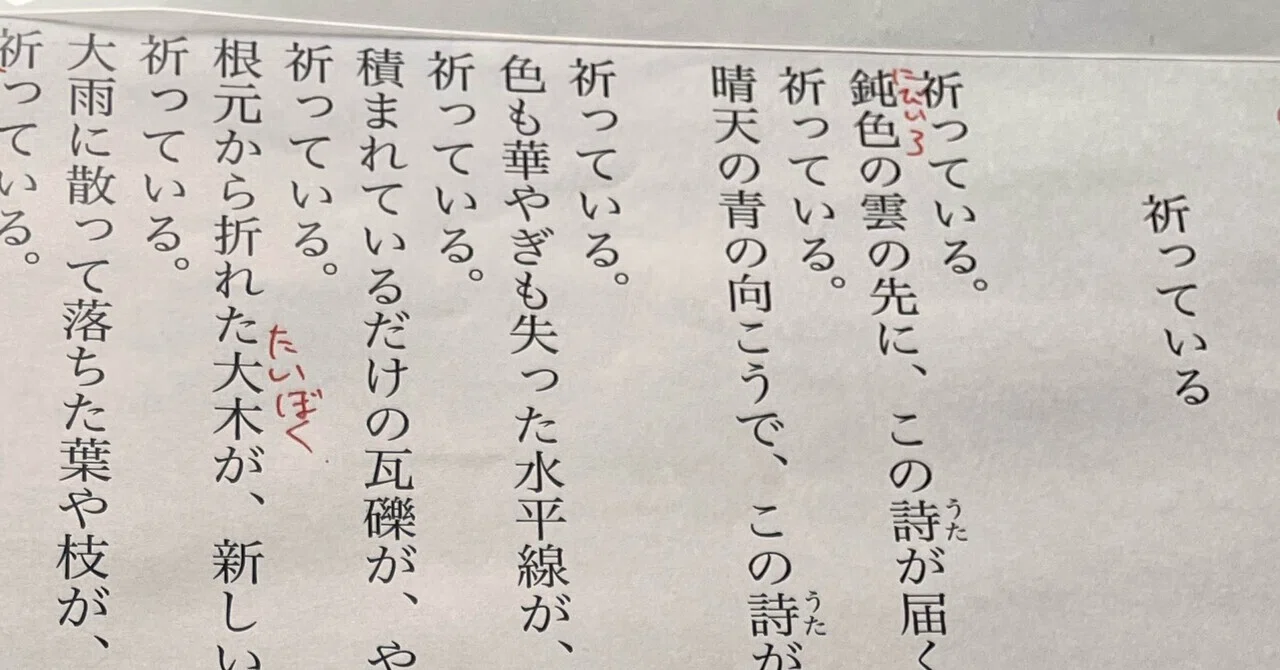 祈っている
祈っている。
にびいろ
鈍色の雲の先に、この詩が届く
うた
祈っている。
晴天の青の向こうで、この詩が
うた
祈っている。
色も華やぎも失った水平線が、
祈っている。
積まれているだけの瓦礫が、や
祈っている。
たいぼく
根元から折れた大木が、新しい
祈っている。
大雨に散って落ちた葉や枝が、
祈っている。